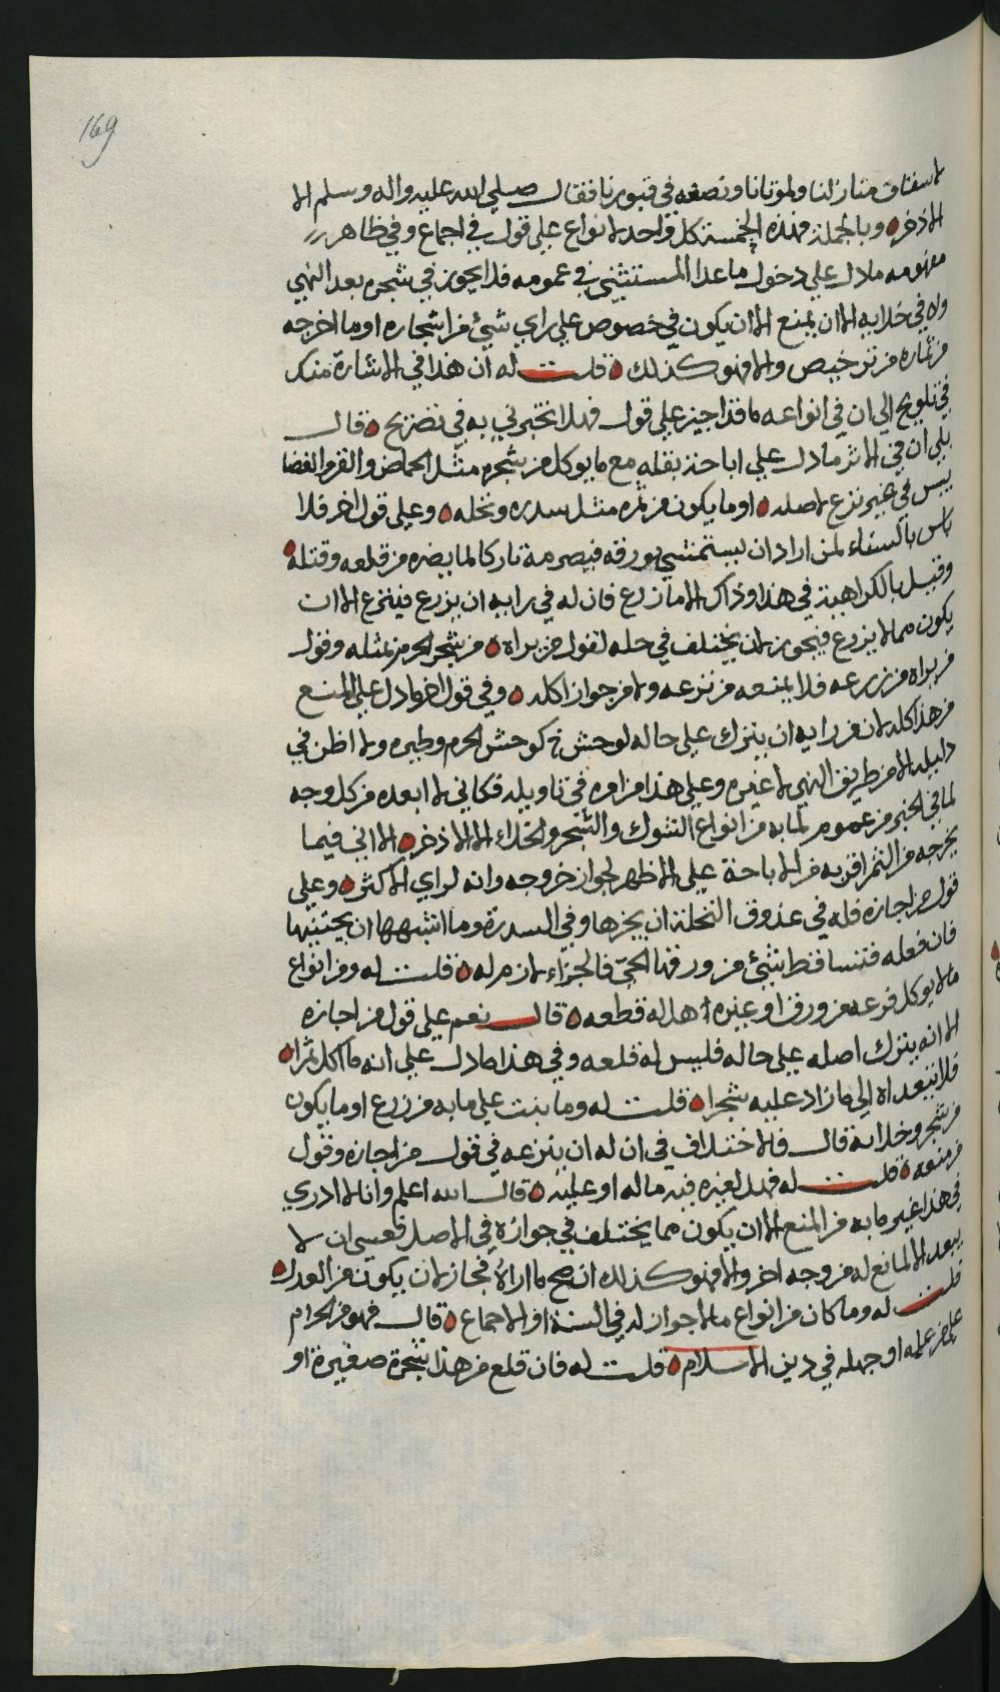 169
لاسقاف منازلنا ولموتانا ونضعه في قبورنا فقال صلى الله عليه واله وسلم الا
الاذخر وبالجملة فهذه الخمسة كل واحد لانواع على قول في اجماع وفي ظاهر
مفهومه ما دل على دخول ما عدا المستثنى في عمومه فلا يجوز في شجره بعد النهي
ولا في خلايه الا ان يمنع الا ان يكون في خصوص على راي شيئ من اشجاره او ما اخرجه
من ثماره من ترخيص والا فهو كذلك قلت له ان هذا في الاشارة منك
في تلويح الى ان في انواعه ما قد اجيز على قول فهلا تخبرني به في تصريح قال
بلى ان في الاثر ما دل على اباحة بقله مع ما يوكل من شجره مثل الحماض والقرم والغضا
ليس في غير نزع لاصله او ما يكون من ثمره مثل سدره ونخله وعلى قول اخر فلا
باس بالسناء لمن اراد ان يستمشي بورقه فيصرمه تاركا لما يضره من قلعه وقتله
وقيل بالكراهية في هذا وذاك الا ما زرع فان له في رايه ان يزرع فينزع الا ان
يكون مما لا يزرع فيجوز لان يختلف في حله لقول من يراه من شجر الحرم من مثله وقول
من يراه من زرعه فلا يمنعه من نزعه ولا من جواز اكله وفي قول اخر ما دل على المنع
من هذا كله لان من رايه ان يترك على حاله لوحش خ كوحش الحرم وطيره ولا اظن في
دليله الا من طريق النهي لا غيره وعلى هذا من امره في تاويله فكاني لا ابعده من كل وجه
لما في الخبر من عموم لما به من انواع الشوك والشجر والخلاء الا الاذخر الا اني فيما
يخرجه من الثمر اقربه من الاباحة على الاظهر لجواز خروجه وانه لراي الاكثر وعلى
قول من اجازه فله في عذوق النخلة ان يجزها وفي السدرة وما اشبهها ان يجتنيها
فان فعله فتساقط شيئ من ورقها الحي فالجزاء لازم له قلت له ومن انواع
ما لا يوكل فرعه من ورق او غيره أهل له قطعه قال نعم على قول من اجازه
الا انه يترك اصله على حاله فليس له قلعه وفي هذا ما دل على انه ما اكل ثمرا
فلا تبعداه الى ما زاد عليه شجرا قلت له وما ينبت على مابه من زرع او ما يكون
من شجر وخلا به قال فلا اختلاف في ان له ان ينزعه في قول من اجازه وقول
من منعه قلت له فهل لغيره فيه ماله او عليه قال الله اعلم وانا لا ادري
في هذا غير مابه من المنع الا ان يكون مما يختلف في جوازه في الاصل فعسى ان لا
يبعد الا لمانع له من وجه اخر والا فهو كذلك ان صح ما اراه فجاز لان يكون من العدل
قلت له وما كان من انواع مالا جواز له في السنة او الاجماع قال فهو من الحرام
على من علمه او جهله في دين الاسلام قلت له فان قلع من هذا شجرة صغيرة او